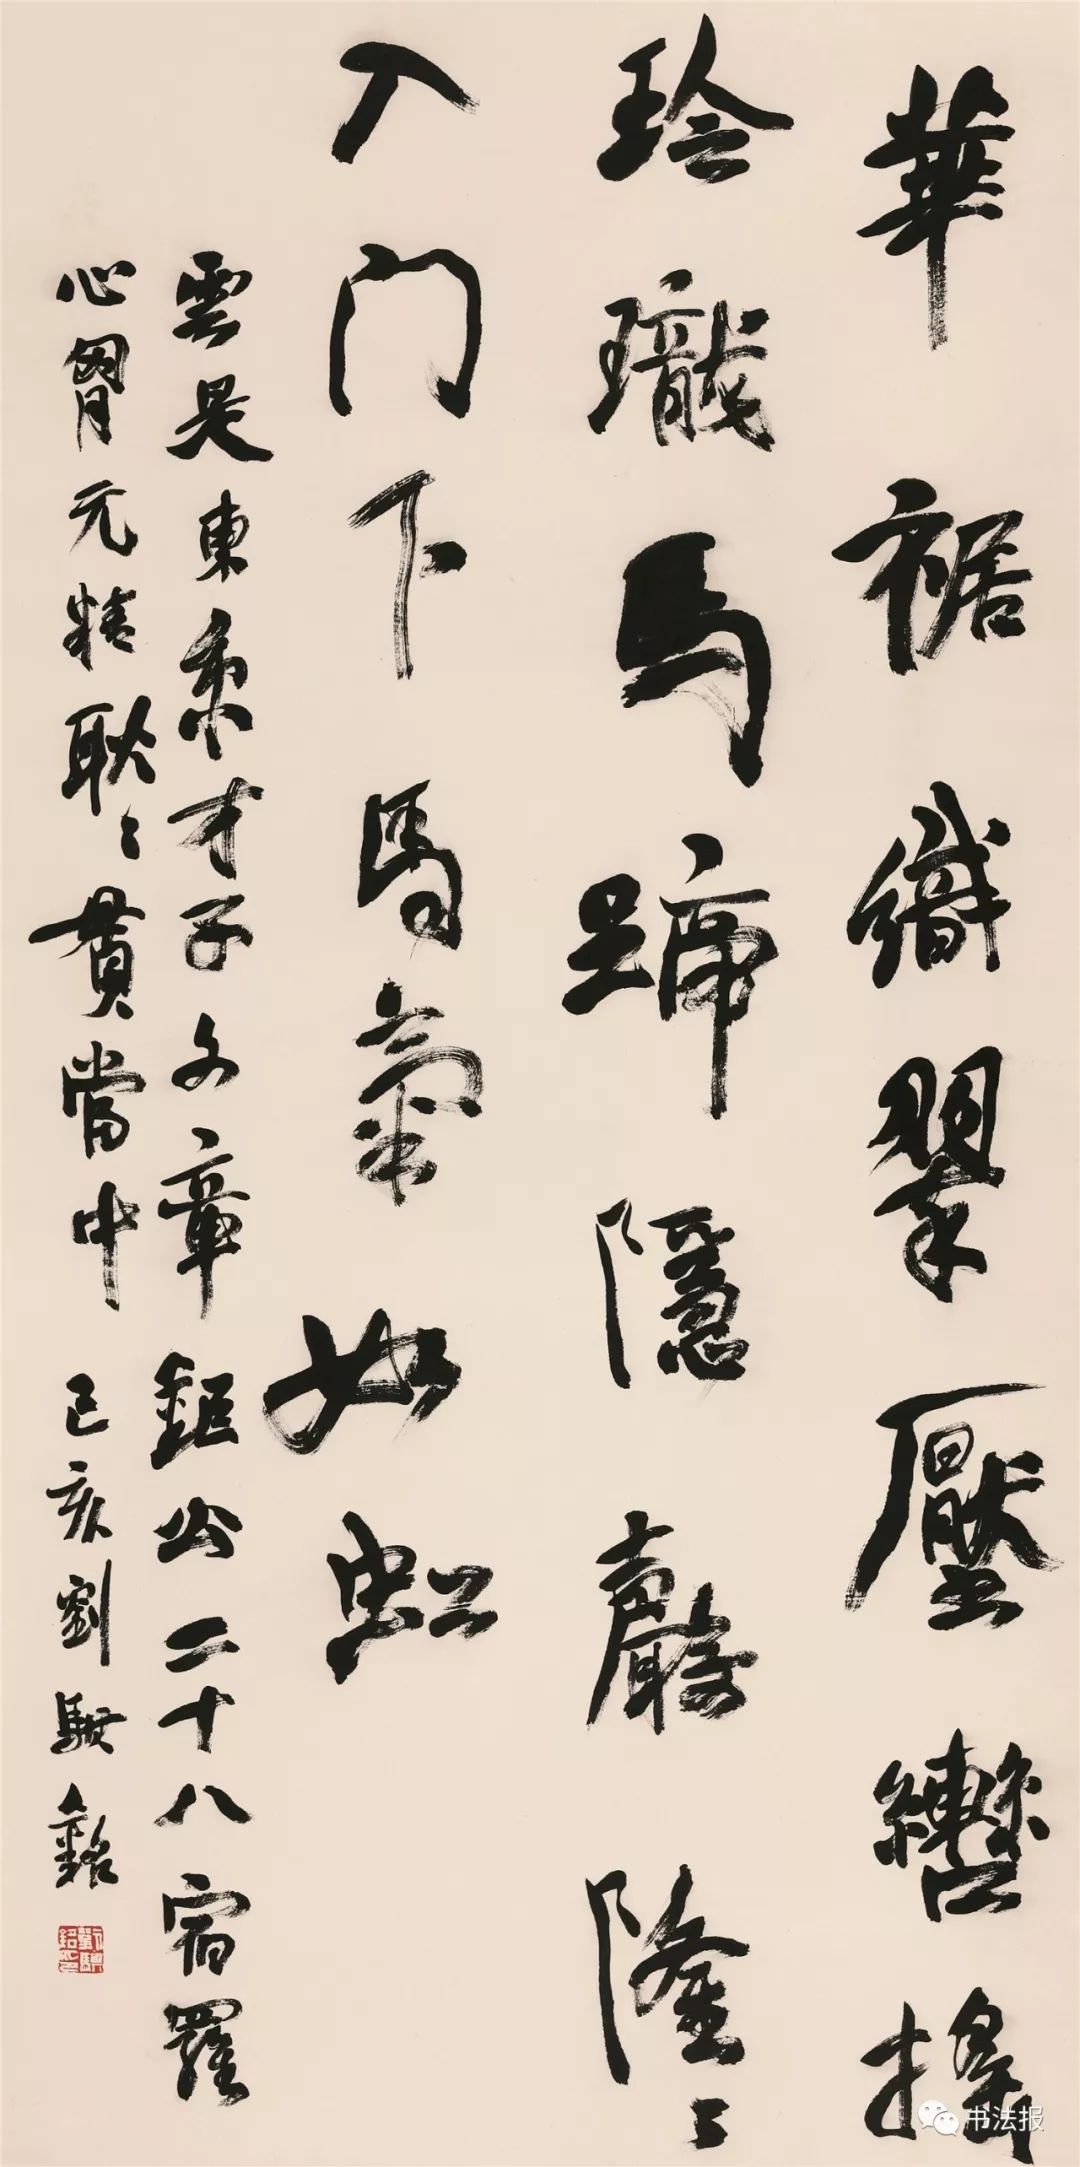 華裾織翠壓轡搖
玲瓏馬蹄隱聲隆〻
入门下馬氣如虹
雲是東京才子文章鉅公二十八宿羅
心胷元精耿〻貫當中 己亥劉銘
书法报